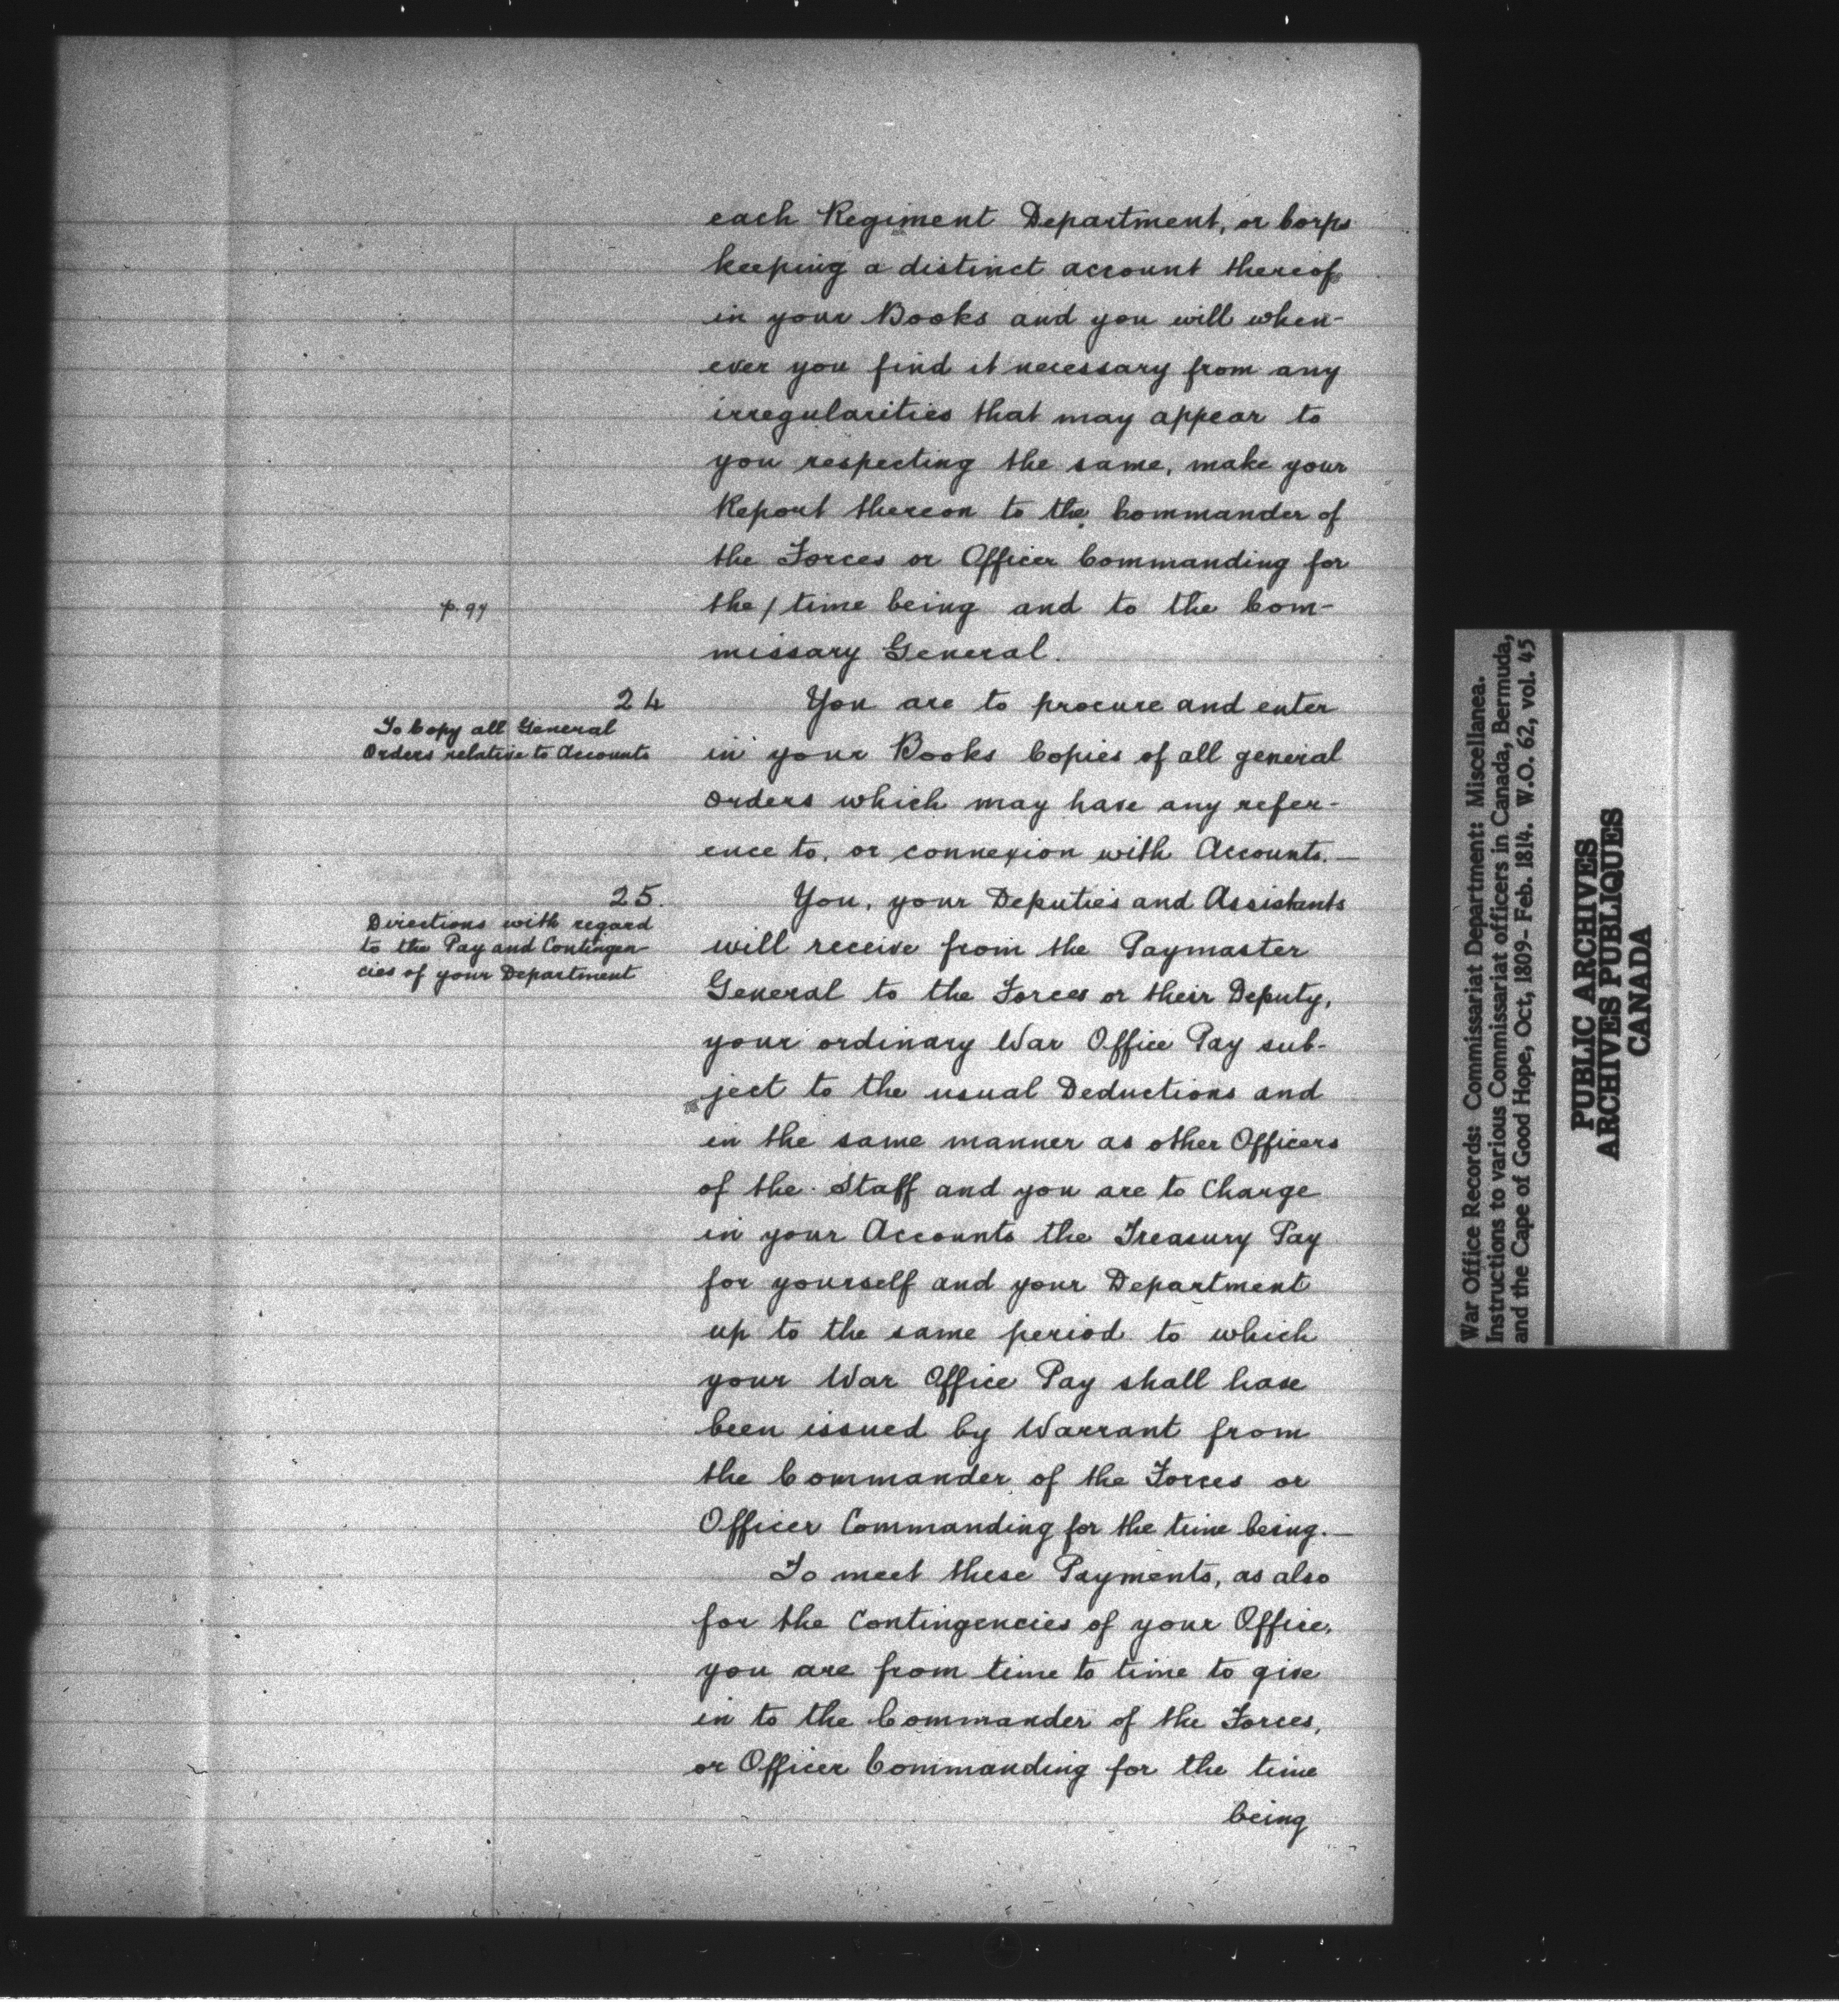 each Regiment Department, or Corps
keeping a distinct account thereof
in your Books and you will when-
ever you find it necessary from any
irregularities that may appear to
you respecting the same, make your
Report thereon to the Commander of
the Forces or Officer Commanding for
p. 97
the / time being and to the Com-
missary General.
24
To Copy all General
Orders relative to Accounts
You are to procure and enter
in your Books Copies of all general
orders which may have any refer-
ence to, or connexion with Accounts.—
25.
Directions with regard
to the Pay and Contingen-
cies of your Department
You, your Deputies and Assistants
will receive from the Paymaster
General to the Forces or their Deputy,
your ordinary War Office Pay sub-
ject to the usual Deductions and
in the same manner as other Officers
of the Staff and you are to Charge
in your Accounts the Treasury Pay
for yourself and your Department
up to the same period to which
your War Office Pay shall have
been issued by Warrant from
the Commander of the Forces or
Officer Commanding for the time being.—
To meet these Payments, as also
for the Contingencies of your Office,
you are from time to time to give
in to the Commander of the Forces,
or Officer Commanding for the time
being
War Office Records: Commissariat Department: Miscellanea.
Instructions to various Commissariat officers in Canada, Bermuda,
and the Cape of Good Hope, Oct, 1809- Feb. 1814. W.O. 62, vol. 45
PUBLIC ARCHIVES
ARCHIVES PUBLIQUES
CANADA